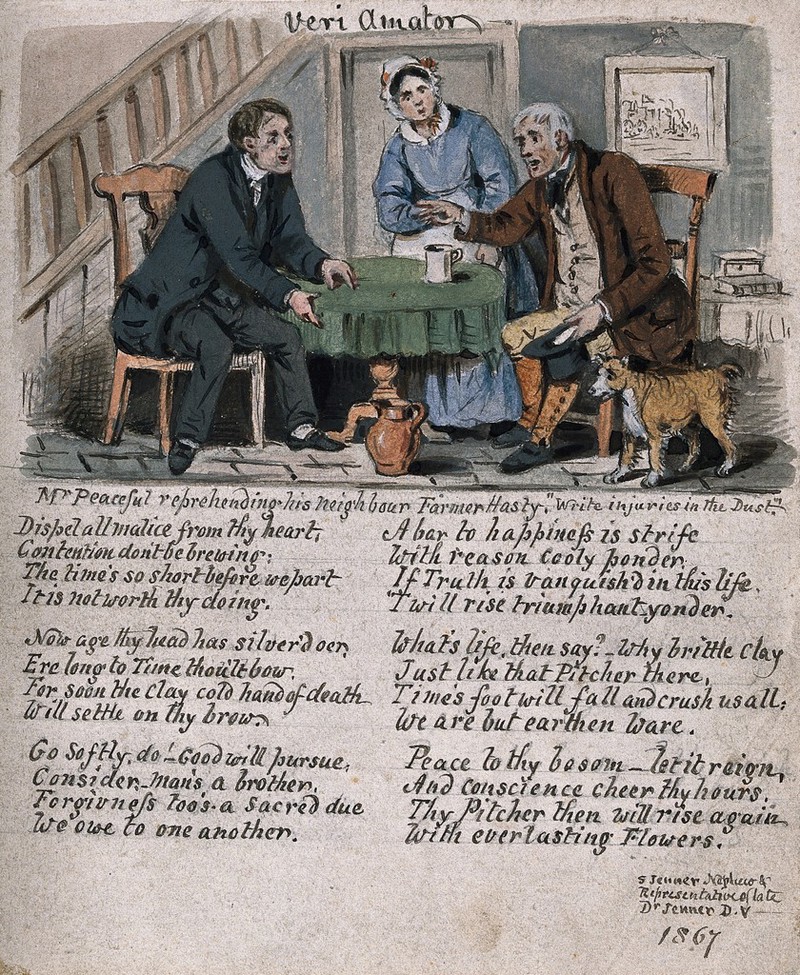 Veri Amator
Mr Peaceful reprehending his neighbour Farmer Hasty, "Write injuries in the Dust."
Dispel all malice from thy heart,
Contention dont be brewing:
The time's so short before we part
It is not worth thy doing.
Now age thy head has silver'd oer,
Ere long to Time thou'lt bow.
For soon the clay cold hand of death
Will settle on thy brow.
Go softly, do! - Good will pursue,
Consider, man's a brother.
Forgivness too's a sacred due
We owe to one another.
A bar to happiness is strife
With reason cooly ponder,
If Truth is vanquish'd in this life.
'Twill rise triumphant yonder.
What's life, then say? - Why brittle Clay
Just like that Pitcher there,
Time's foot will fall and crush us all;
We are but earthen Ware.
Peace to thy bosom - let it reign,
And conscience cheer thy hours.
Thy Pitcher then will rise again
With everlasting Flowers.
S Jenner Nephew &
Representative of late
Dr Jenner D.V
1867